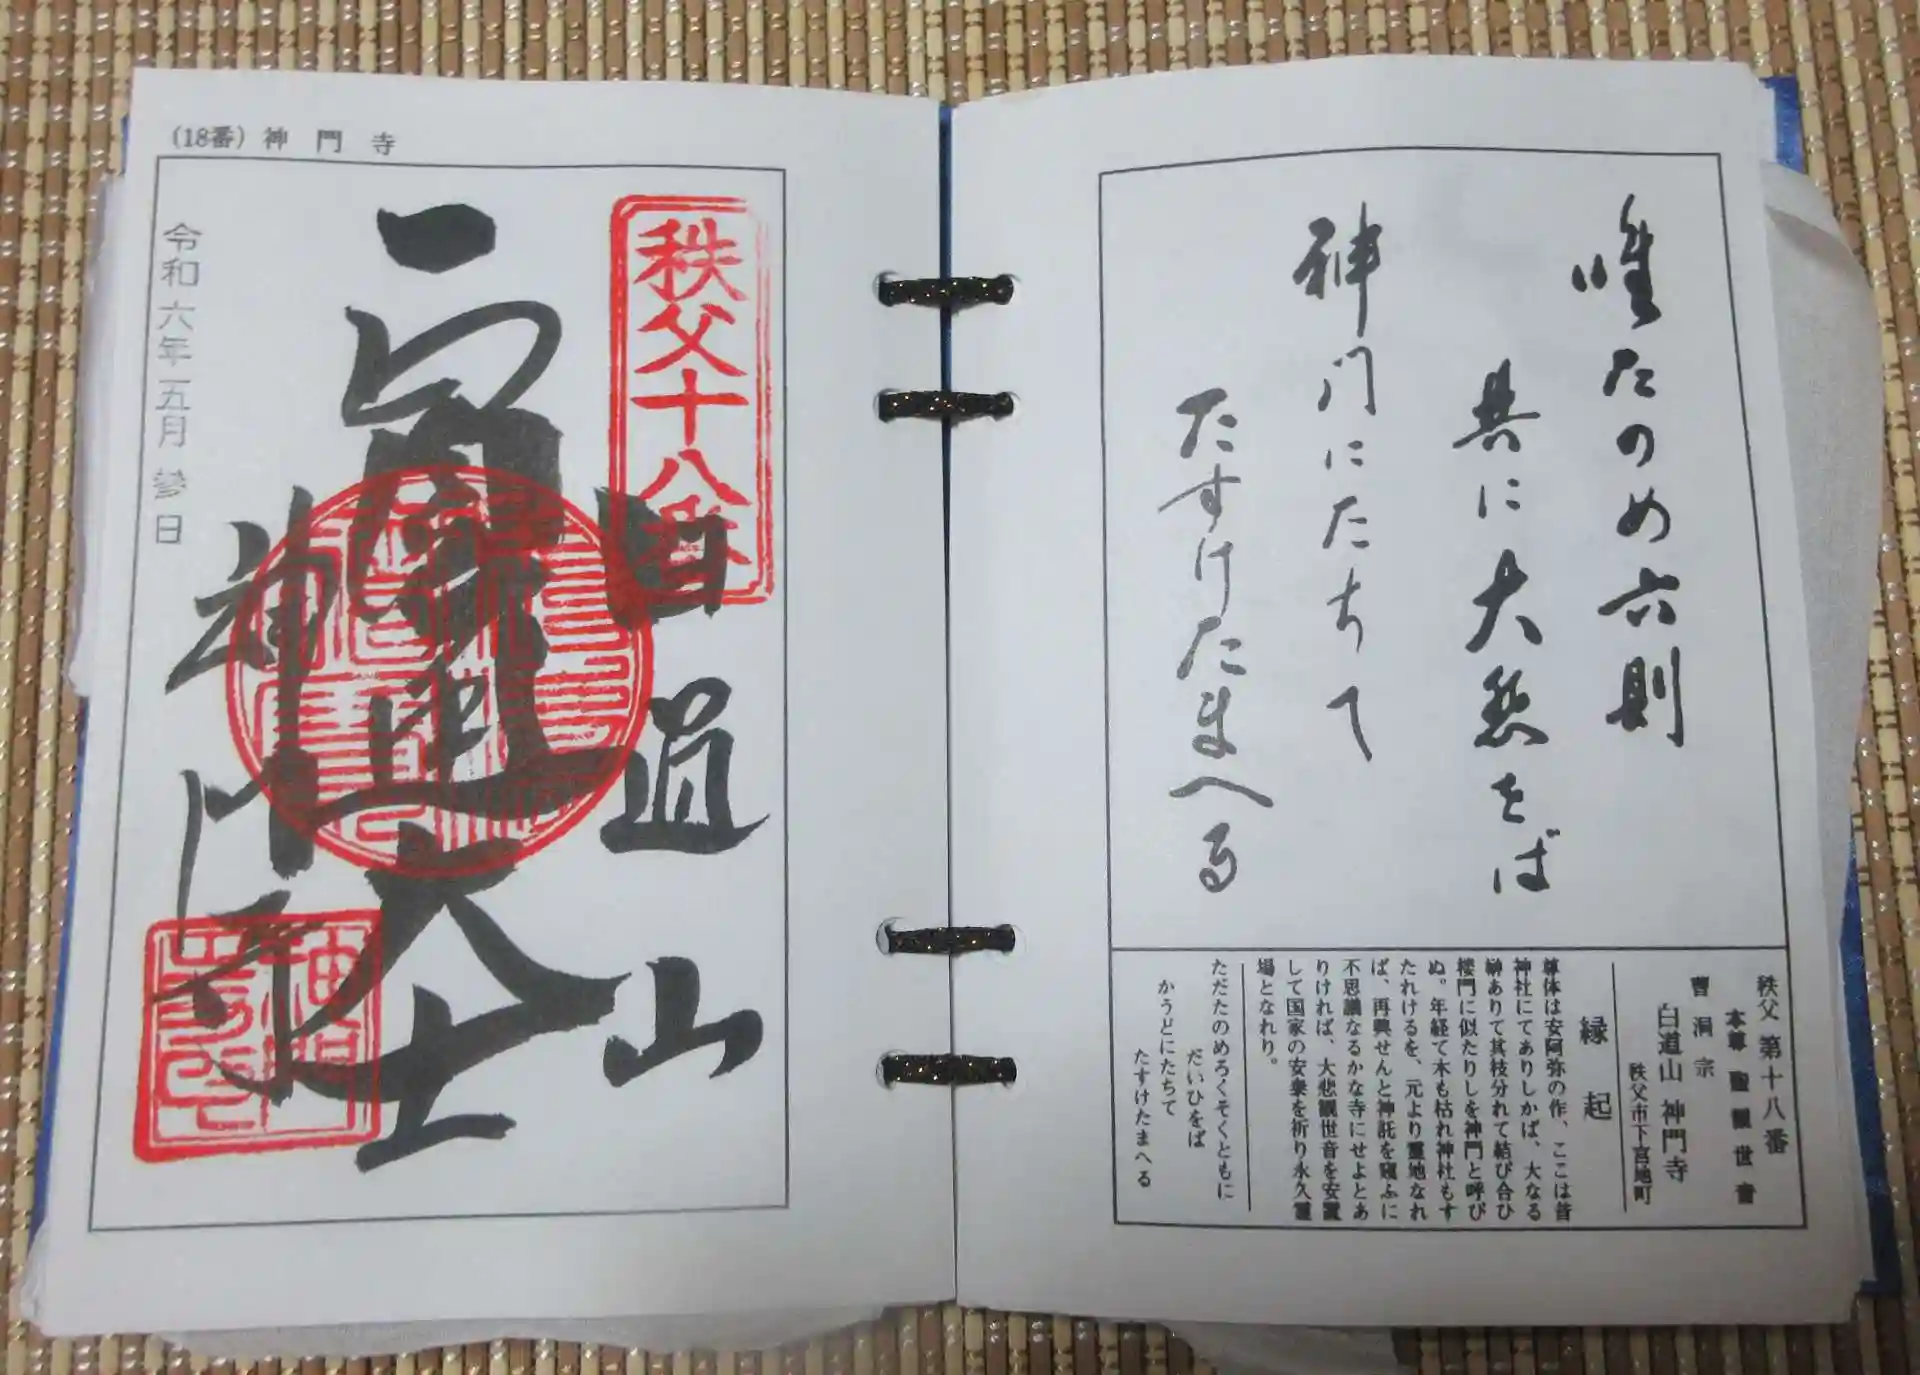 唯たのめ六則
共に大悲をば
神门にたちて
たすけたまへる
秩父 第十八番
本尊 聖観世音
曹洞宗
白道山 神門寺
秩父市下宮地町
縁起
尊体は安阿弥の作、ここは昔
神社にてありしかば、大なる
榊ありて其枝分れて結び合ひ
楼門に似たりしを神門と呼び
ぬ。年経て木も枯れ神社もす
たれけるを、元より霊地なれ
ば、再興せんと神託を窺ふに
不思議なるかな寺にせよとあ
りければ、大悲観世音を安置
して国家の安泰を祈り永久霊
場となれり。
ただたのめろくそくともに
だいひをば
かうどにたちて
たすけたまへる
(18番) 神門寺
秩父十八番
白道山
大士
神门寺
令和六年五月 日